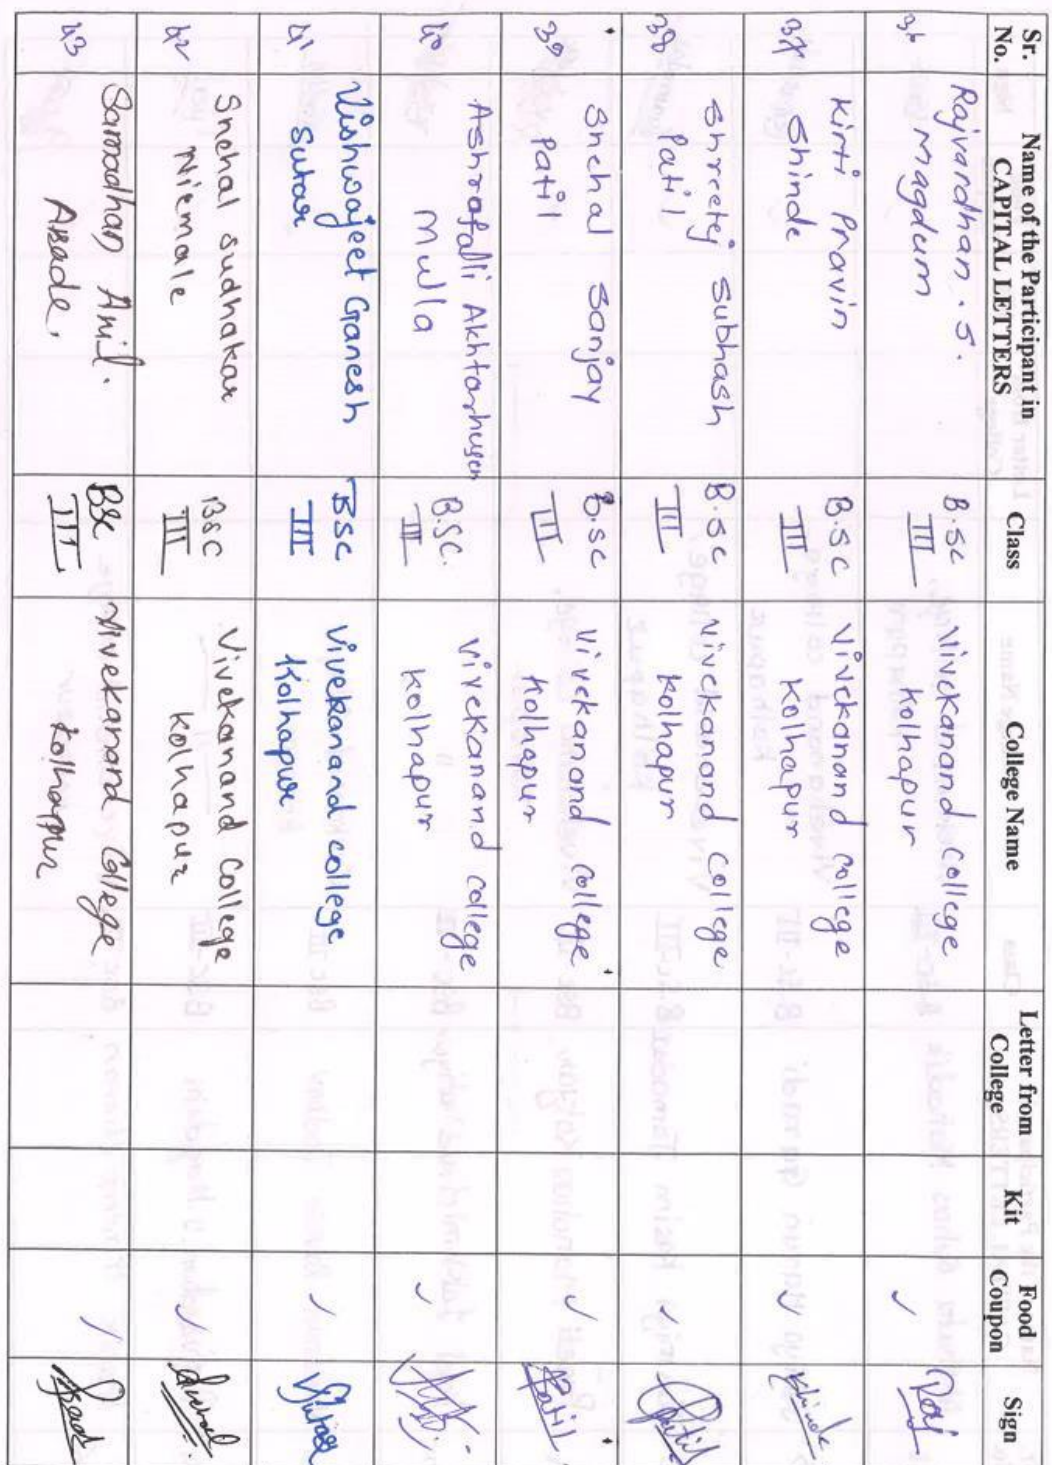 Sr. No. Name of the Participant in CAPITAL LETTERS Class College Name Letter from College Kit Food Coupon Sign
36 Rajvardhan . S. Magdum B.sc III Vivekanand College Kolhapur ✓ Raj
37 Kirti Pravin Shinde B.sc III Vivekanand College Kolhapur ✓ Khinde
38 Shreetej Subhash Patil B.sc III Vivekanand College Kolhapur ✓
39 Snehal Sanjay Patil B.sc III Vivekanand College Kolhapur ✓ Patil
40 Ashrafalli Akhtarhusen Mulla B.SC. III Vivekanand College Kolhapur ✓
41 Vishwajeet Ganesh Sutar BSC III Vivekanand college Kolhapur ✓
42 Snehal Sudhakar Nirmale BSC III Vivekanand College Kolhapur ✓
43 Samadhan Anil. Abade. BSc III Vivekanand College Kolhapur ✓